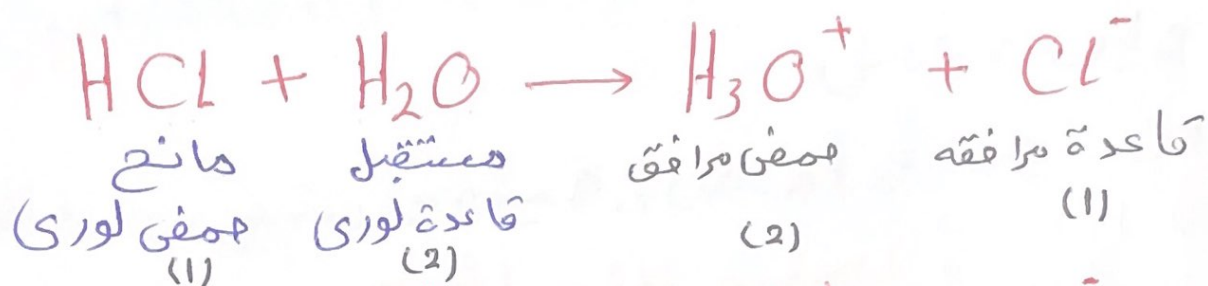 HCl + H₂O → H₃O⁺ + Cl⁻
مانح مستقبل حمض مرافق قاعدة مرافقه
حمض لورى قاعدة لورى (2) (1)
(1) (2)